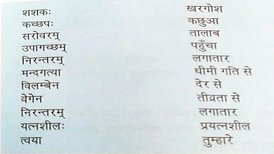 शशकः खरगोश
कच्छपः कछुआ
सरोवरम् तालाब
उपागच्छम् पहुँचा
निरन्तरम् लगातार
मन्दगत्या धीमी गति से
विलम्बेन देर से
वेगेन तीव्रता से
निरन्तरम् लगातार
यत्नशीलः प्रयत्नशील
त्वया तुम्हारे